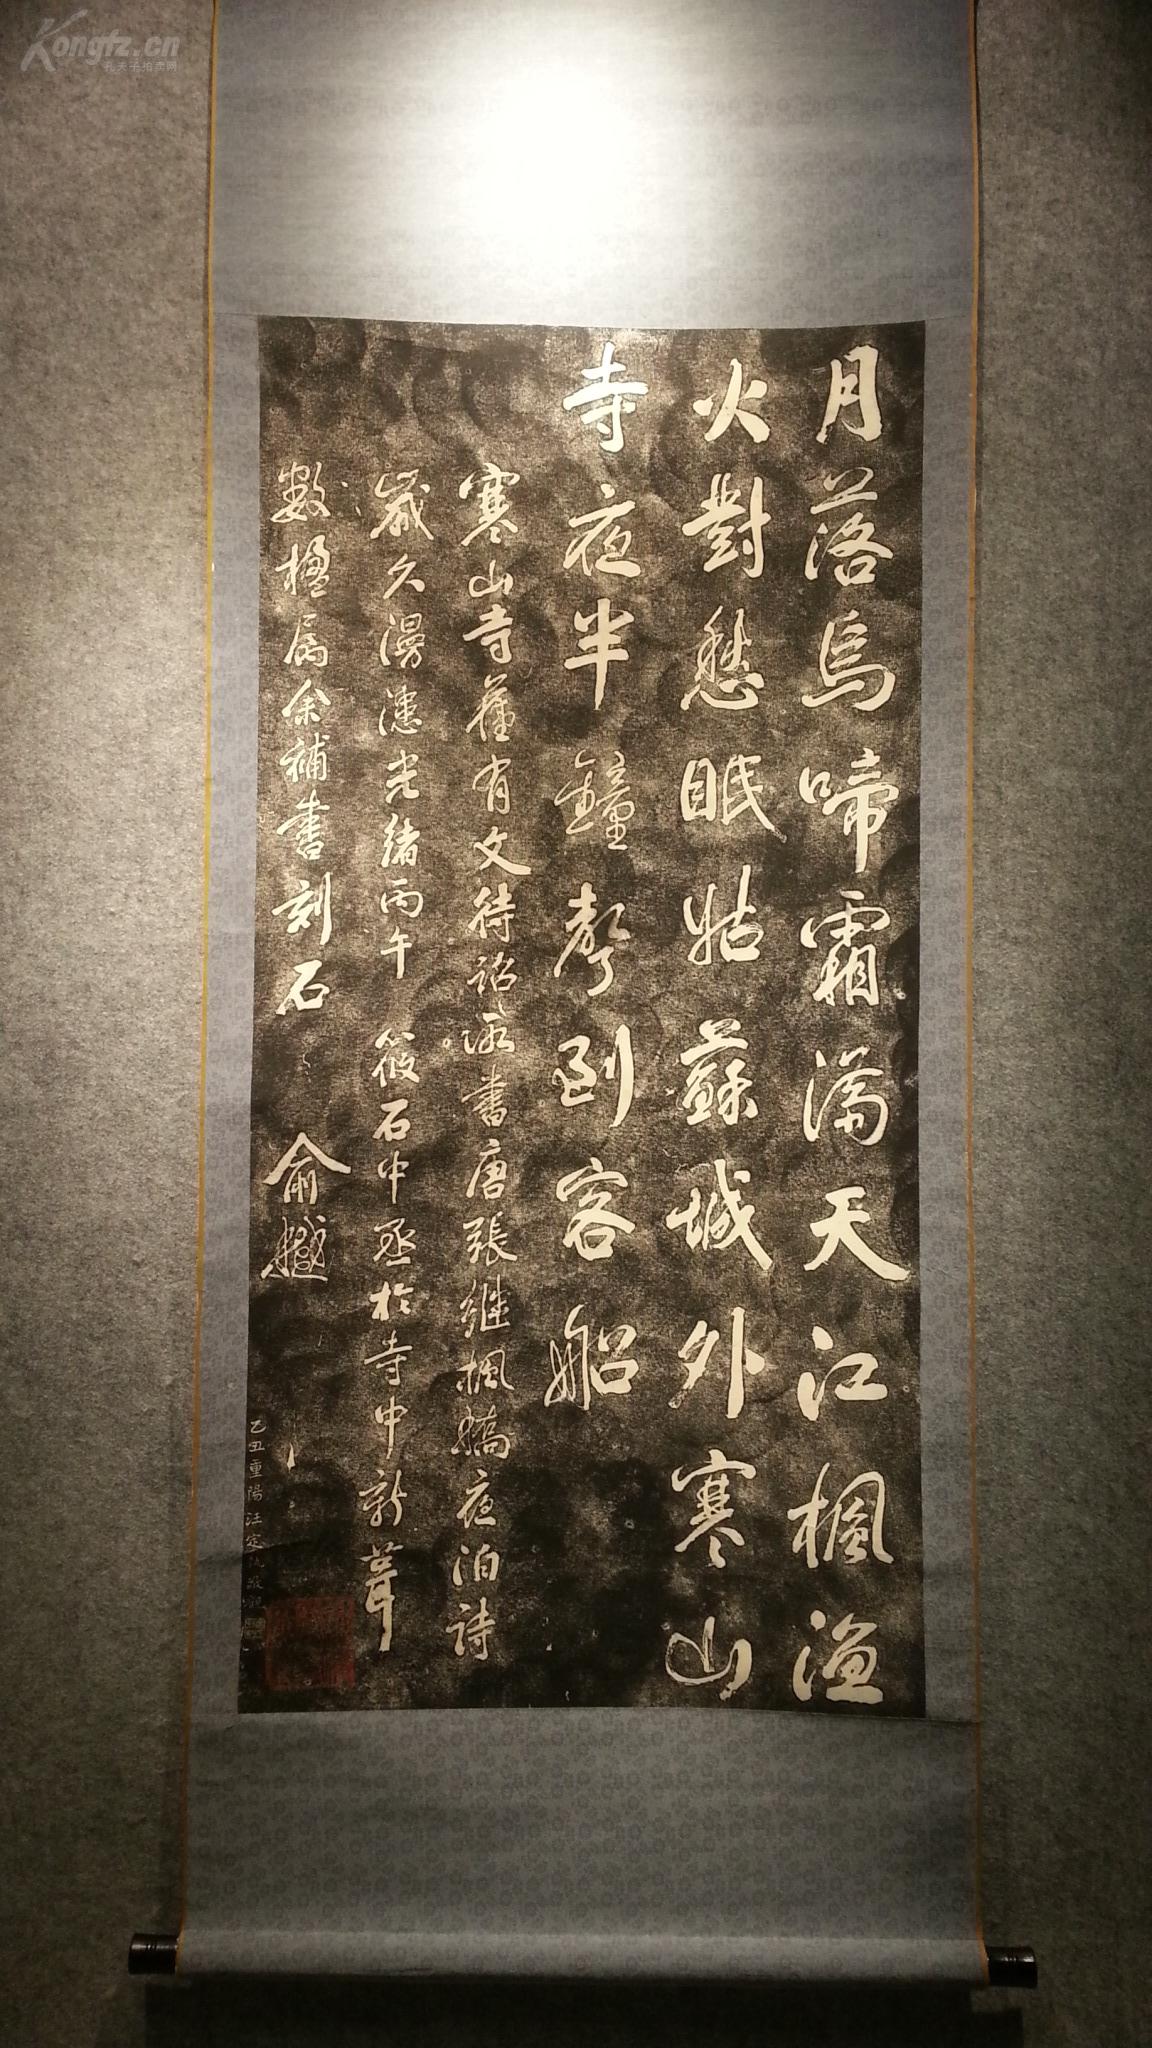 月落烏啼霜滿天江楓漁
火對愁眠姑蘇城外寒山
寺夜半鐘聲到客船
寒山寺舊有文待詔所書唐張继楓橋夜泊詩
歲久漫漶光緒丙午筱石中丞於寺中新葺
數楹属余補書刻石
俞樾
乙丑重陽汪定
Kongfz.cn
孔夫子拍卖网